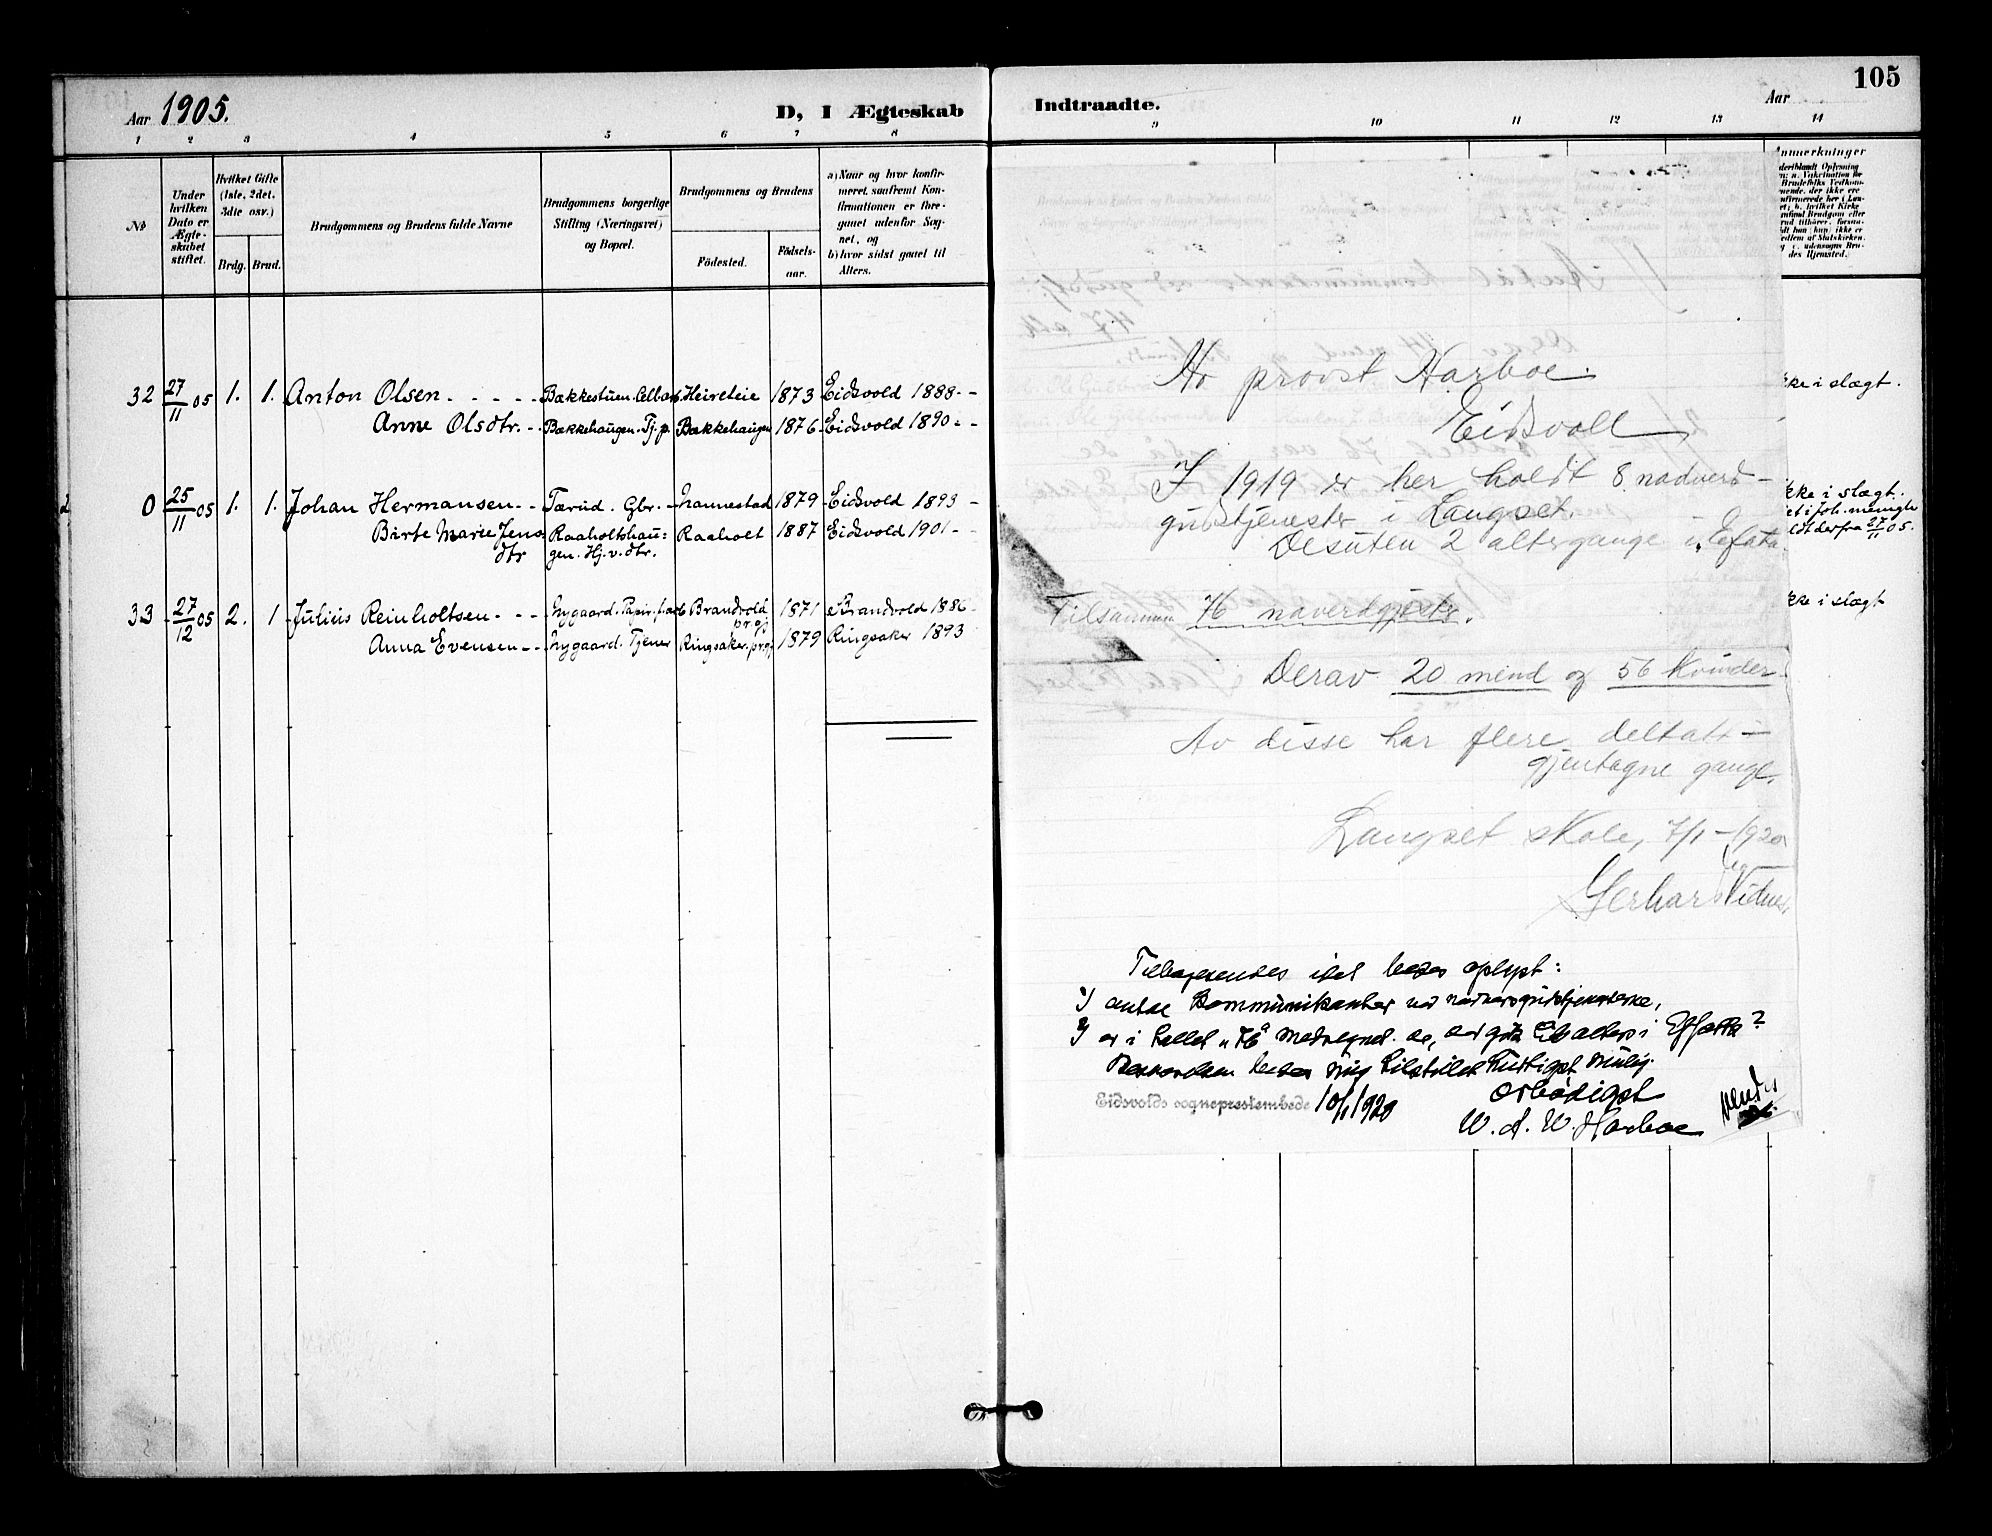 105
Aar 1905.
D, I Ægteskab
Indtraadte.
Aar
1 2 3 4 5 6 7 8 9 10 11 12 13 14
No
Under hvilken Dato er Ægteskabet stiftet.
Hvilket Gifte (1ste, 2det, 3die osv.)
Brdg. Brud.
Brudgommens og Brudens fulde Navne
Brudgommens borgerlige Stilling (Næringsvei) og Bopæl.
Brudgommens og Brudens
Fødested.
Fødselsaar.
a) Naar og hvor konfirmeret, saafremt Konfirmationen er foregaaet udenfor Sognet, og
b) hvor sidst gaaet til Alters.
32 27/11 05 1. 1. Anton Olsen. Bækkestuen. Heireteie 1873 Eidsvold 1888
Anne Olsdtr. Bækkehaugen. Tj. p. Bækkehaugen 1876 Eidsvold 1890
kke i slægt.
0 25/11 05 1. 1. Johan Hermansen Tærud. Gbr. Nannestad 1879 Eidsvold 1893
kke i slægt.
Birte Marie Jens Raaholtshau= Raaholt 1887 Eidsvold 1901
et i Joh. menigh
dtr gen. Hj. v. dtr.
ldt derfra 27/11 05.
33 27/12 05 2. 1 Julius Reinholtsen Nygaard. Brandvold 1871 Brandvold 1886
pr. gj
kke i slægt
Anna Evensen Nygaard. Tjener Ringsaker. pr. gj 1879 Ringsaker 1893
Hr provst Harboe.
Eidsvoll
I 1919 er her holdt 8 nadverd-
gudstjenester i Langset.
Desuten 2 altergange i „Efata
Tilsammen 76 naverdgjester.
Derav 20 mend og 56 kvinder.
Av disse har flere deltatt
gjentagne gange.
Langset skole, 7/1 - 1920
Gerhard Vidnes.
Tilbagesendes idet bedes oplyst:
1) antal kommunikanter ved nadverdgudstjenesterne,
2) er i tallet „76" medregnet de, der gik til alters i Effata?
bedes mig tilstillet hurtigst mulig.
Eidsvolds sogneprestembede 10/1 1920
ærbødigst
W. A. W. Harboe
vend